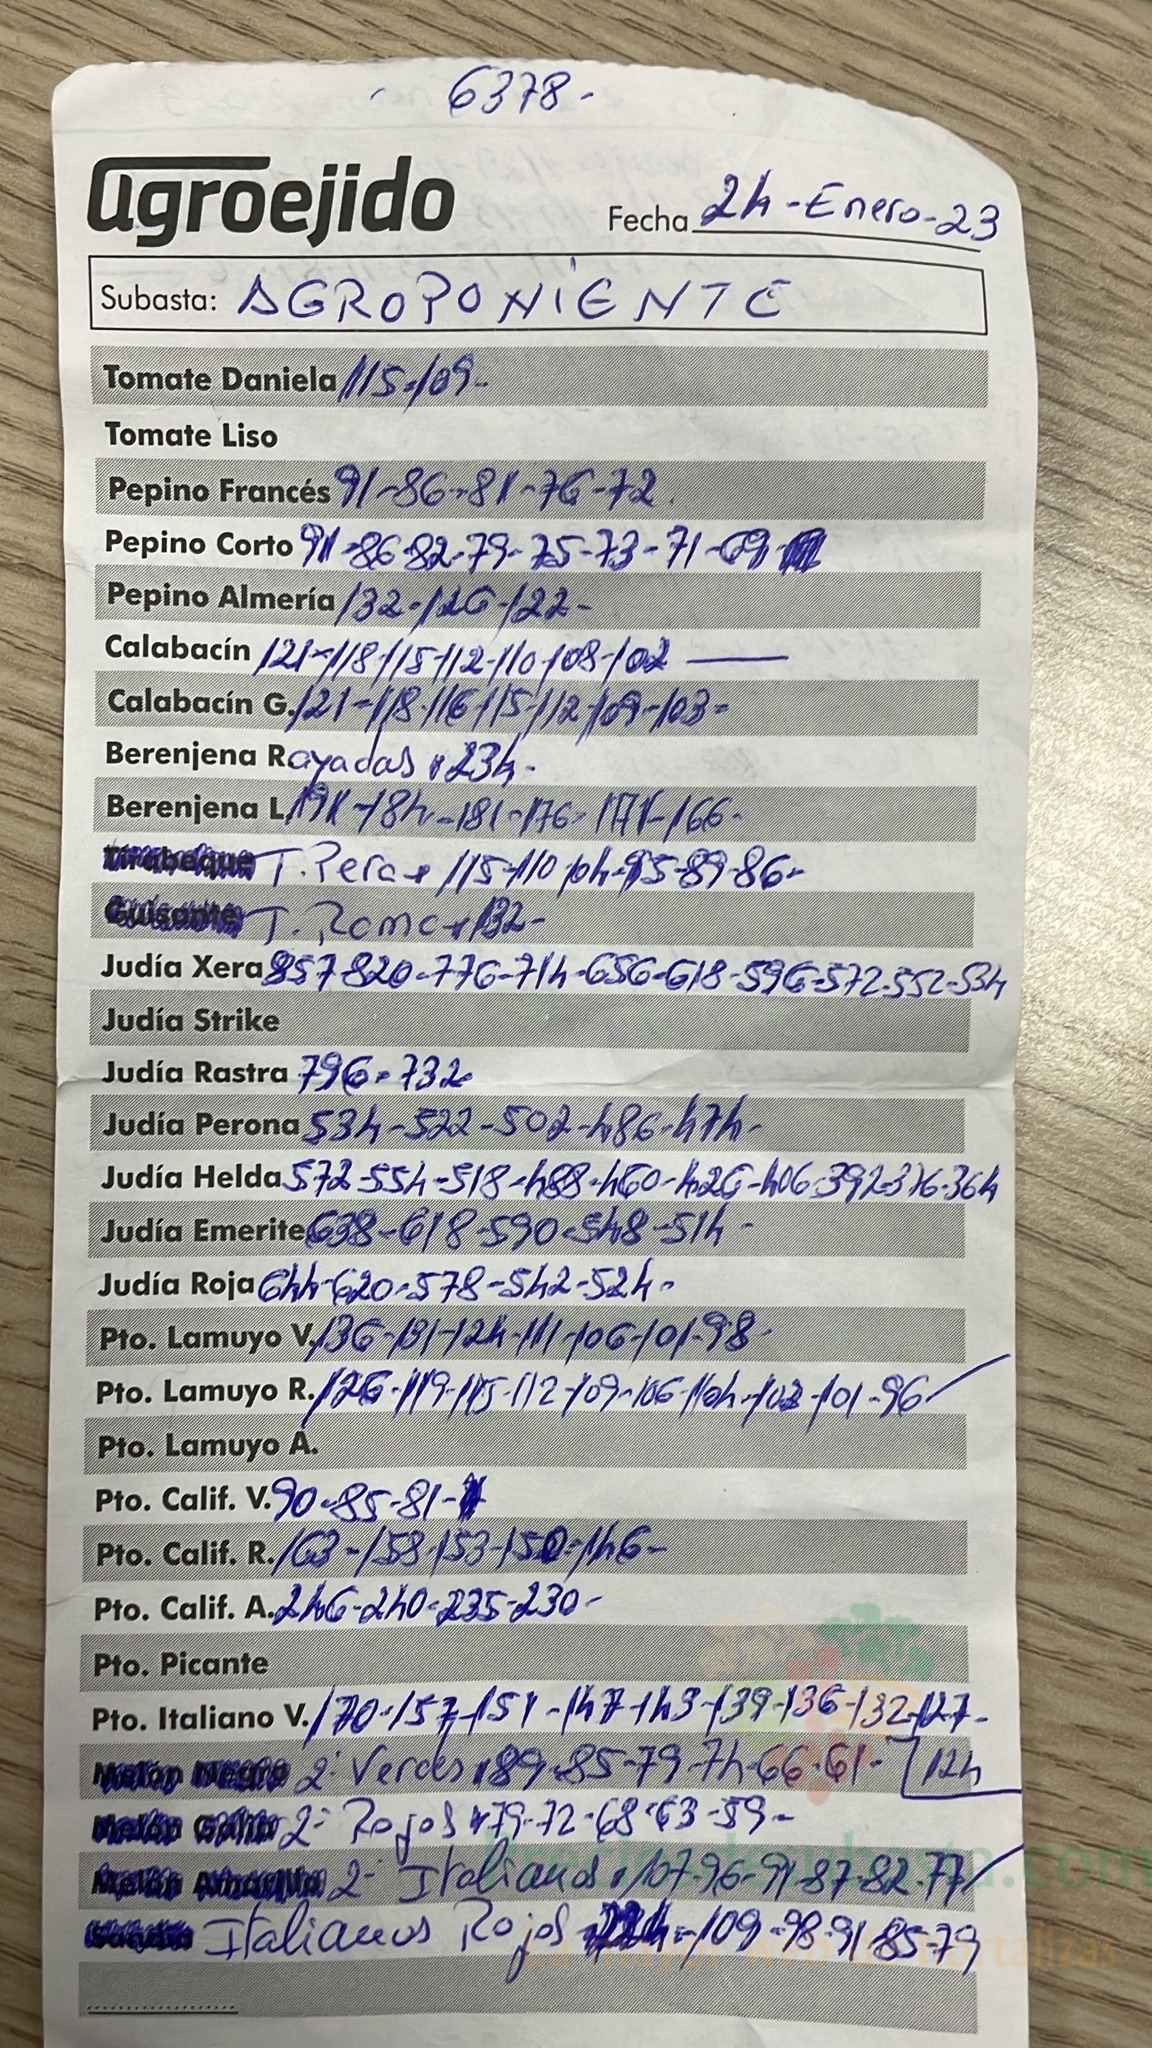 6378-
agroejido
Fecha 24-Enero-23
Subasta: AGROPONIENTE
Tomate Daniela 115-109-
Tomate Liso
Pepino Francés 91-86-81-76-72
Pepino Corto 91-86-82-79-75-73-71-69-
Pepino Almería 132-126-122-
Calabacín 121-118-115-112-110-108-102
Calabacín G. 121-118-116-115-112-109-103-
Berenjena Rayadas 234-
Berenjena L. 191-184-181-176-171-166-
Tirabeque T. Pera 115-110-104-95-89-86-
Guisante T. Rama 132-
Judía Xera 857-820-776-714-656-618-596-572-552-534
Judía Strike
Judía Rastra 796-732
Judía Perona 534-522-502-486-474-
Judía Helda 572-554-518-488-460-426-406-392-376-364
Judía Emerite 638-618-590-548-514-
Judía Roja 644-620-578-542-524-
Pto. Lamuyo V. 136-131-124-111-106-101-98-
Pto. Lamuyo R. 126-119-115-112-109-106-104-102-101-96
Pto. Lamuyo A.
Pto. Calif. V. 90-85-81-
Pto. Calif. R. 163-158-153-150-146-
Pto. Calif. A. 246-240-235-230-
Pto. Picante
Pto. Italiano V. 170-157-151-147-143-139-136-132-127-
Melón Negro 2ª Verdes 89-85-79-74-66-61- 124
Melón Galia 2ª Rojos 79-72-68-63-59-
Melón Amarillo 2ª Italianos 107-96-91-87-82-77
Sandía Italianos Rojos 109-98-91-85-79